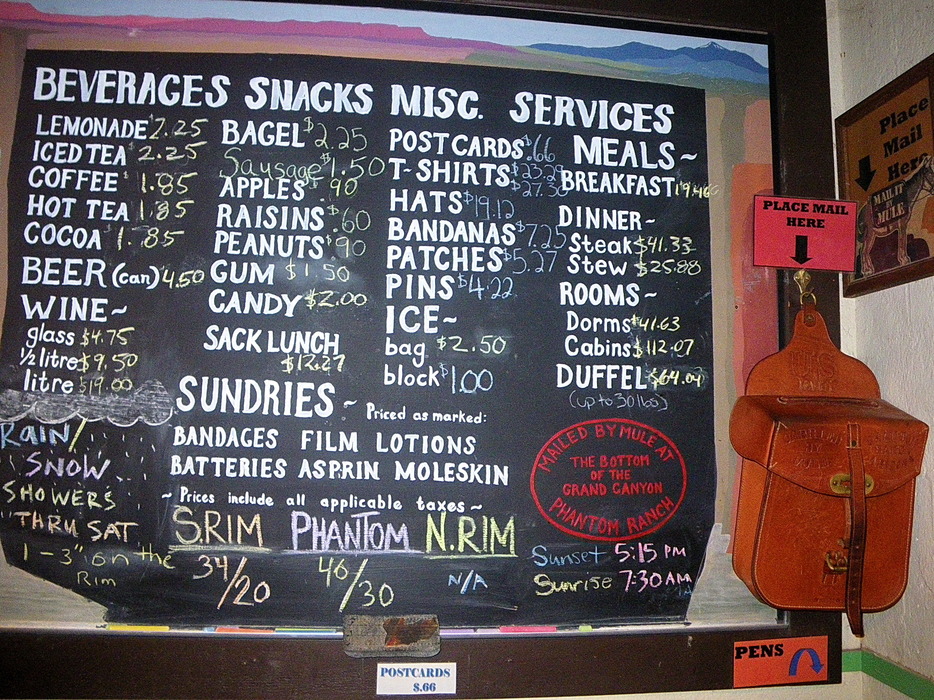 BEVERAGES SNACKS MISC. SERVICES
LEMONADE $2.25
ICED TEA $2.25
COFFEE $1.85
HOT TEA 1.85
COCOA $1.85
BEER (can) 4.50
WINE~
glass $4.75
1/2 litre $9.50
litre $19.00
BAGEL $2.25
Sausage $1.50
APPLES $.90
RAISINS $.60
PEANUTS $.90
GUM $1.50
CANDY $2.00
SACK LUNCH
$12.27
POSTCARDS $.66
T-SHIRTS $23.29
$27.36
HATS $19.12
BANDANAS $7.25
PATCHES $5.27
PINS $4.22
ICE~
bag $2.50
block $1.00
MEALS~
BREAKFAST
DINNER~
Steak $41.33
Stew $25.88
ROOMS~
Dorms $41.63
Cabins $112.07
DUFFEL $64.04
(up to 30 lbs)
SUNDRIES ~ Priced as marked:
BANDAGES FILM LOTIONS
BATTERIES ASPRIN MOLESKIN
~ Prices include all applicable taxes ~
RAIN/
SNOW
SHOWERS
THRU SAT
1-3" on the
Rim
S.RIM PHANTOM N.RIM
34/20 46/30 N/A
MAILED BY MULE AT
THE BOTTOM
OF THE
GRAND CANYON
PHANTOM RANCH
Sunset 5:15 PM
Sunrise 7:30 AM
POSTCARDS
$.66
PLACE MAIL
HERE
Place
Mail
Here
MAIL IT
MULE
PENS